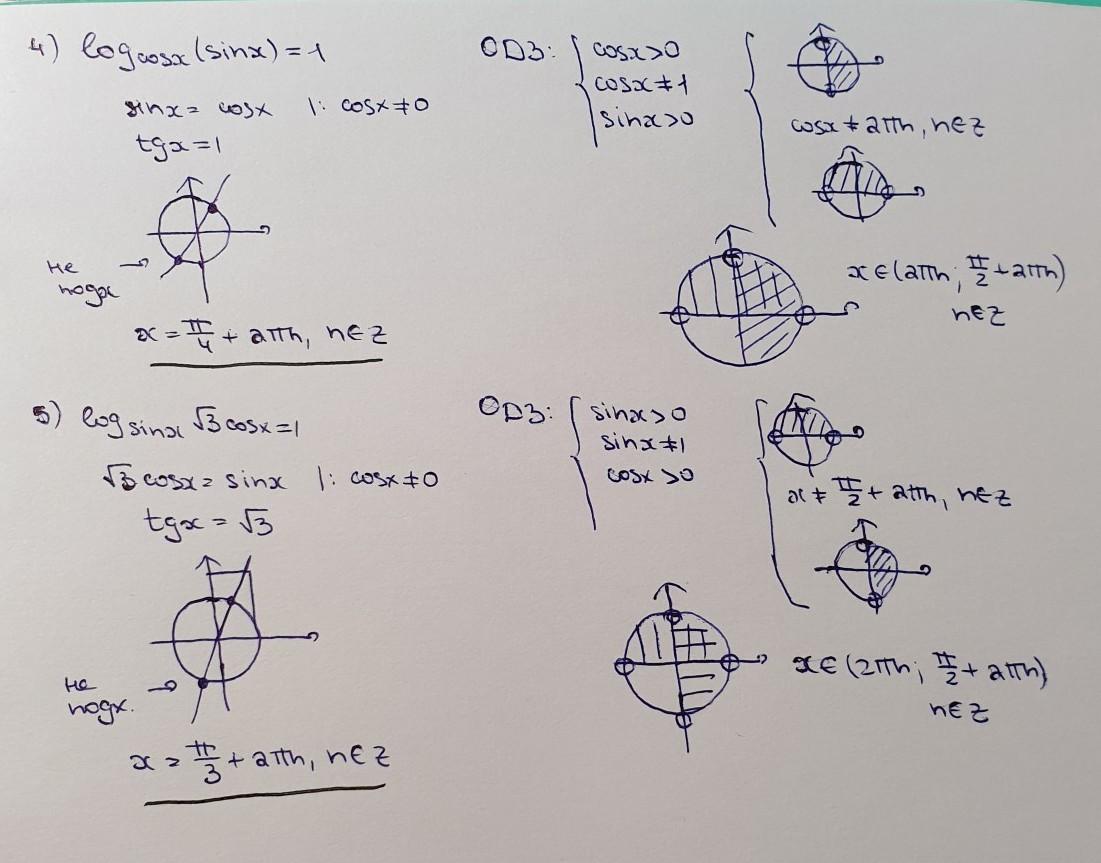 4) log cosx (sinx) = 1
sinx = cosx |: cosx ≠ 0
tgx = 1
не
подх
x = π/4 + 2πn, n∈Z
ОДЗ: { cosx > 0
cosx ≠ 1
sinx > 0
cosx ≠ 2πn, n∈Z
x ∈ (2πn; π/2 + 2πn)
n∈Z
5) log sinx √3 cosx = 1
√3 cosx = sinx |: cosx ≠ 0
tgx = √3
не
подх.
x = π/3 + 2πn, n∈Z
ОДЗ: { sinx > 0
sinx ≠ 1
cosx > 0
x ≠ π/2 + 2πn, n∈Z
x ∈ (2πn; π/2 + 2πn)
n∈Z